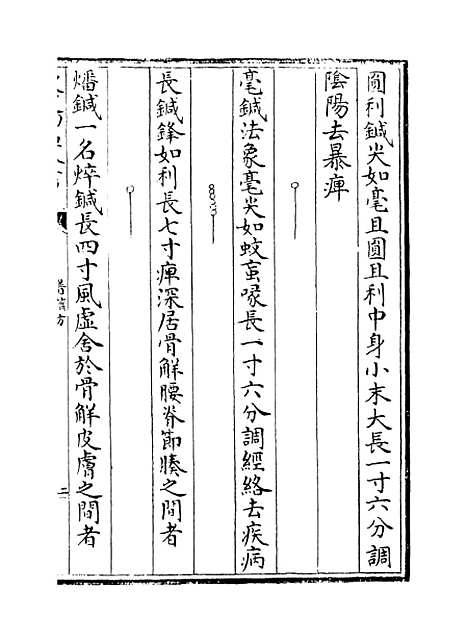 圓利鍼尖如毫且圓且利中身小末大長一寸六分調
陰陽去暴痺
毫鍼法象毫尖如蚊䖟喙長一寸六分調經絡去疾病
長鍼鋒如利長七寸痺深居骨解腰脊節腠之間者
燔鍼一名焠鍼長四寸風虛舍於骨解皮膚之間者
普濟方
二